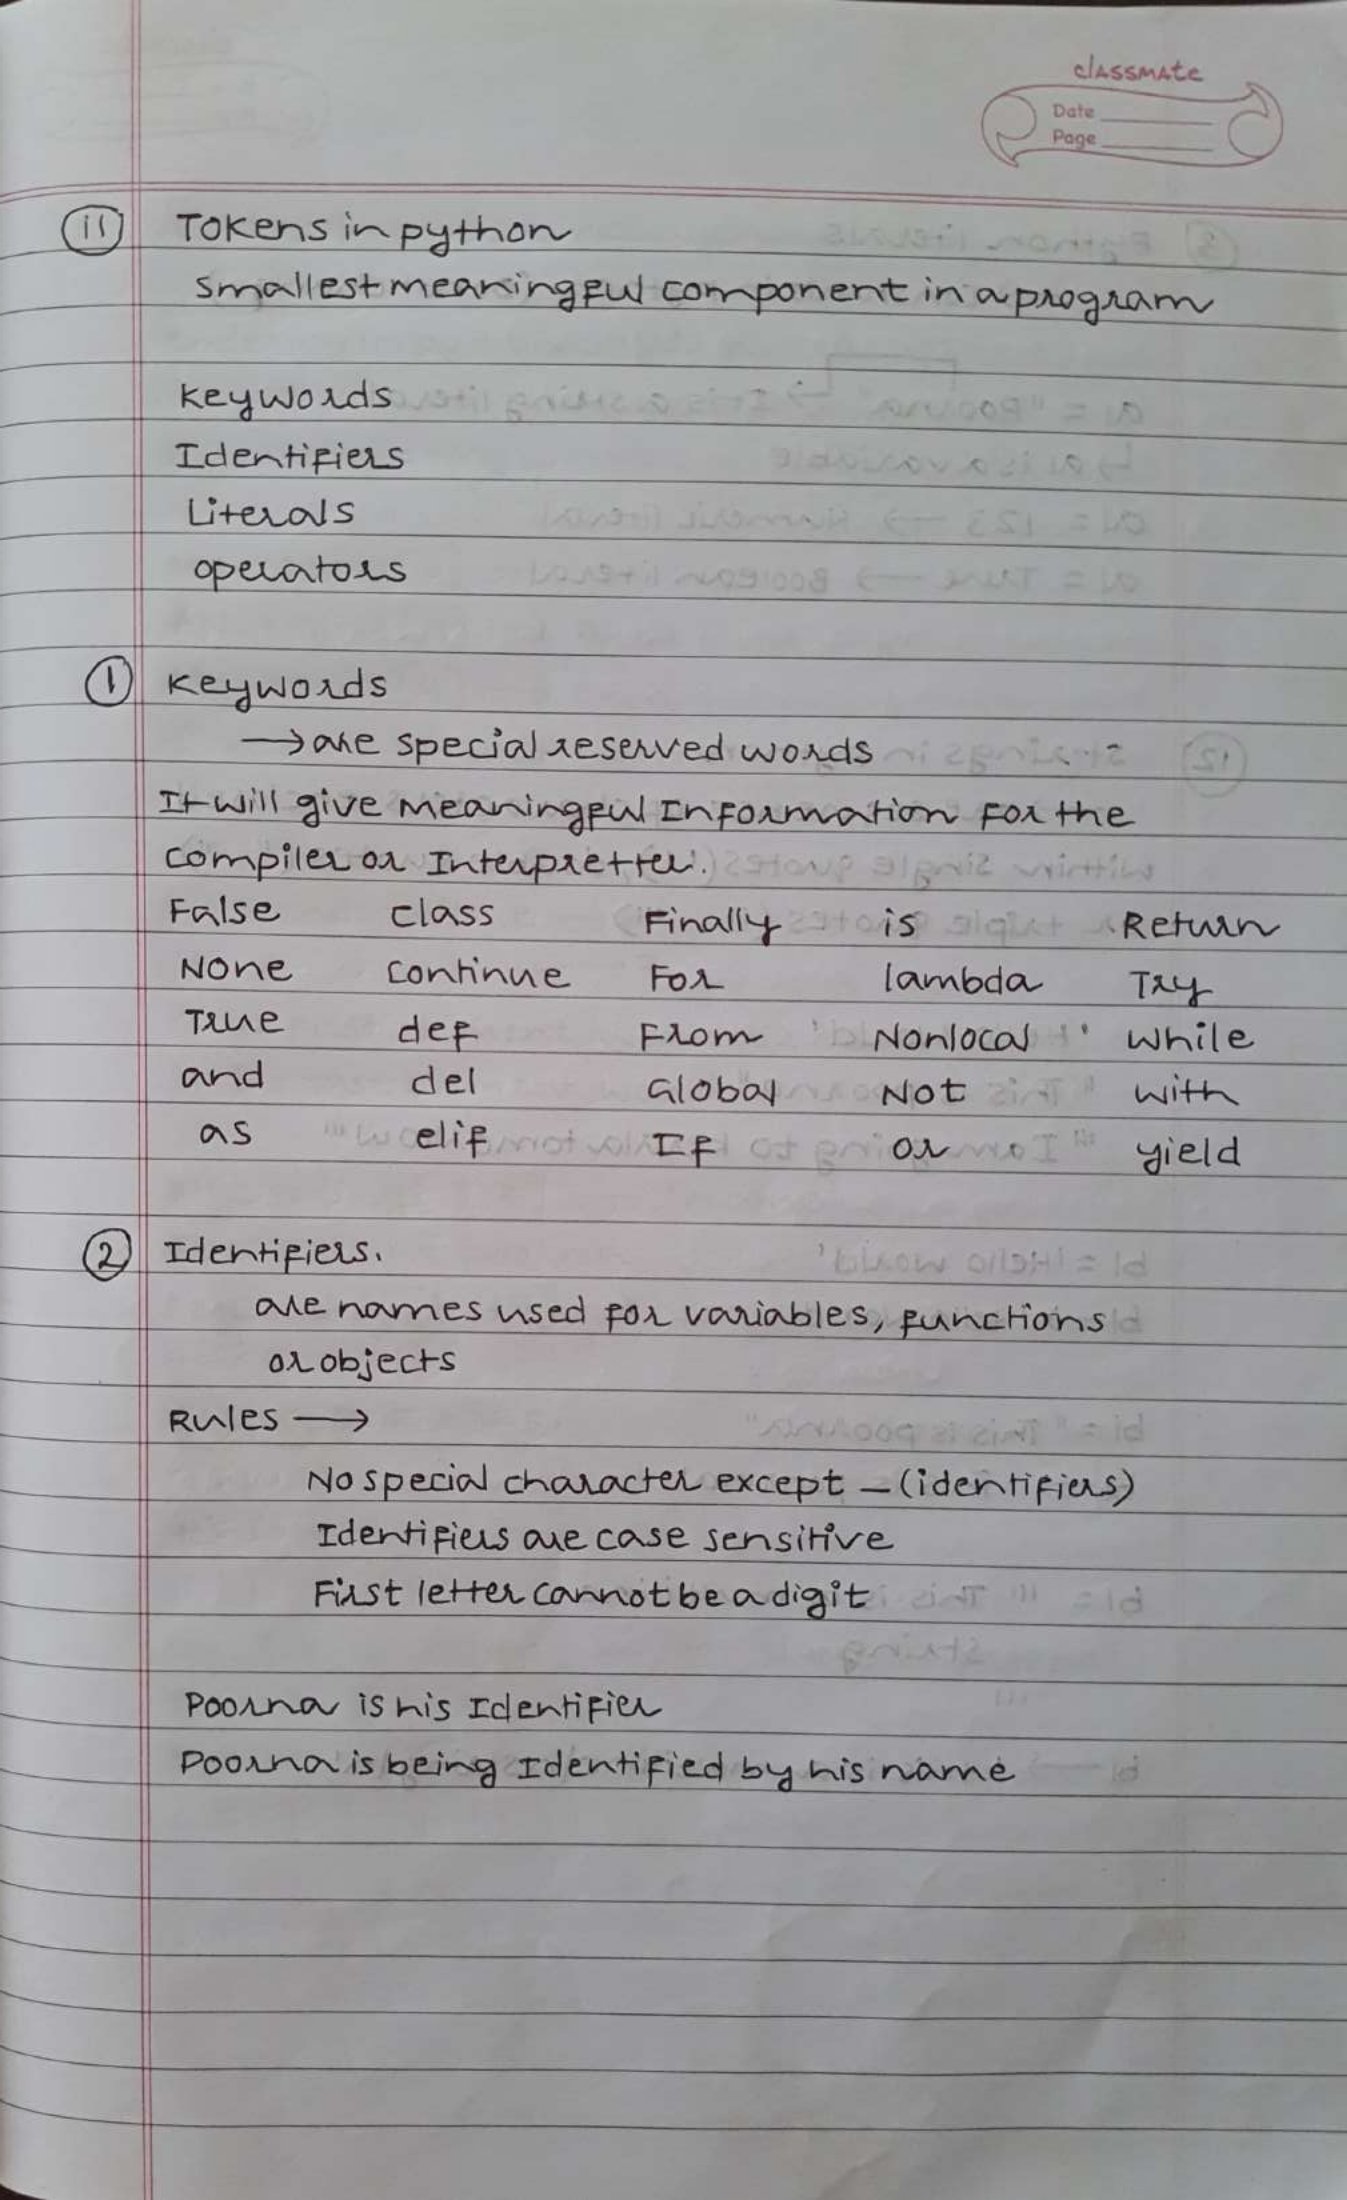 classmate
Date
Page
11 Tokens in python
smallest meaningful component in a program
keywords
Identifiers
Literals
operators
1 keywords
→ are special reserved words
It will give meaningful Information For the
compiler or Interpretter.
False class Finally is Return
None continue For lambda Try
True def From Nonlocal while
and del Global Not with
as elif If or yield
2 Identifiers.
are names used for variables, functions
or objects
Rules →
No special character except _ (identifiers)
Identifiers are case sensitive
First letter cannot be a digit
Poorna is his Identifier
Poorna is being Identified by his name